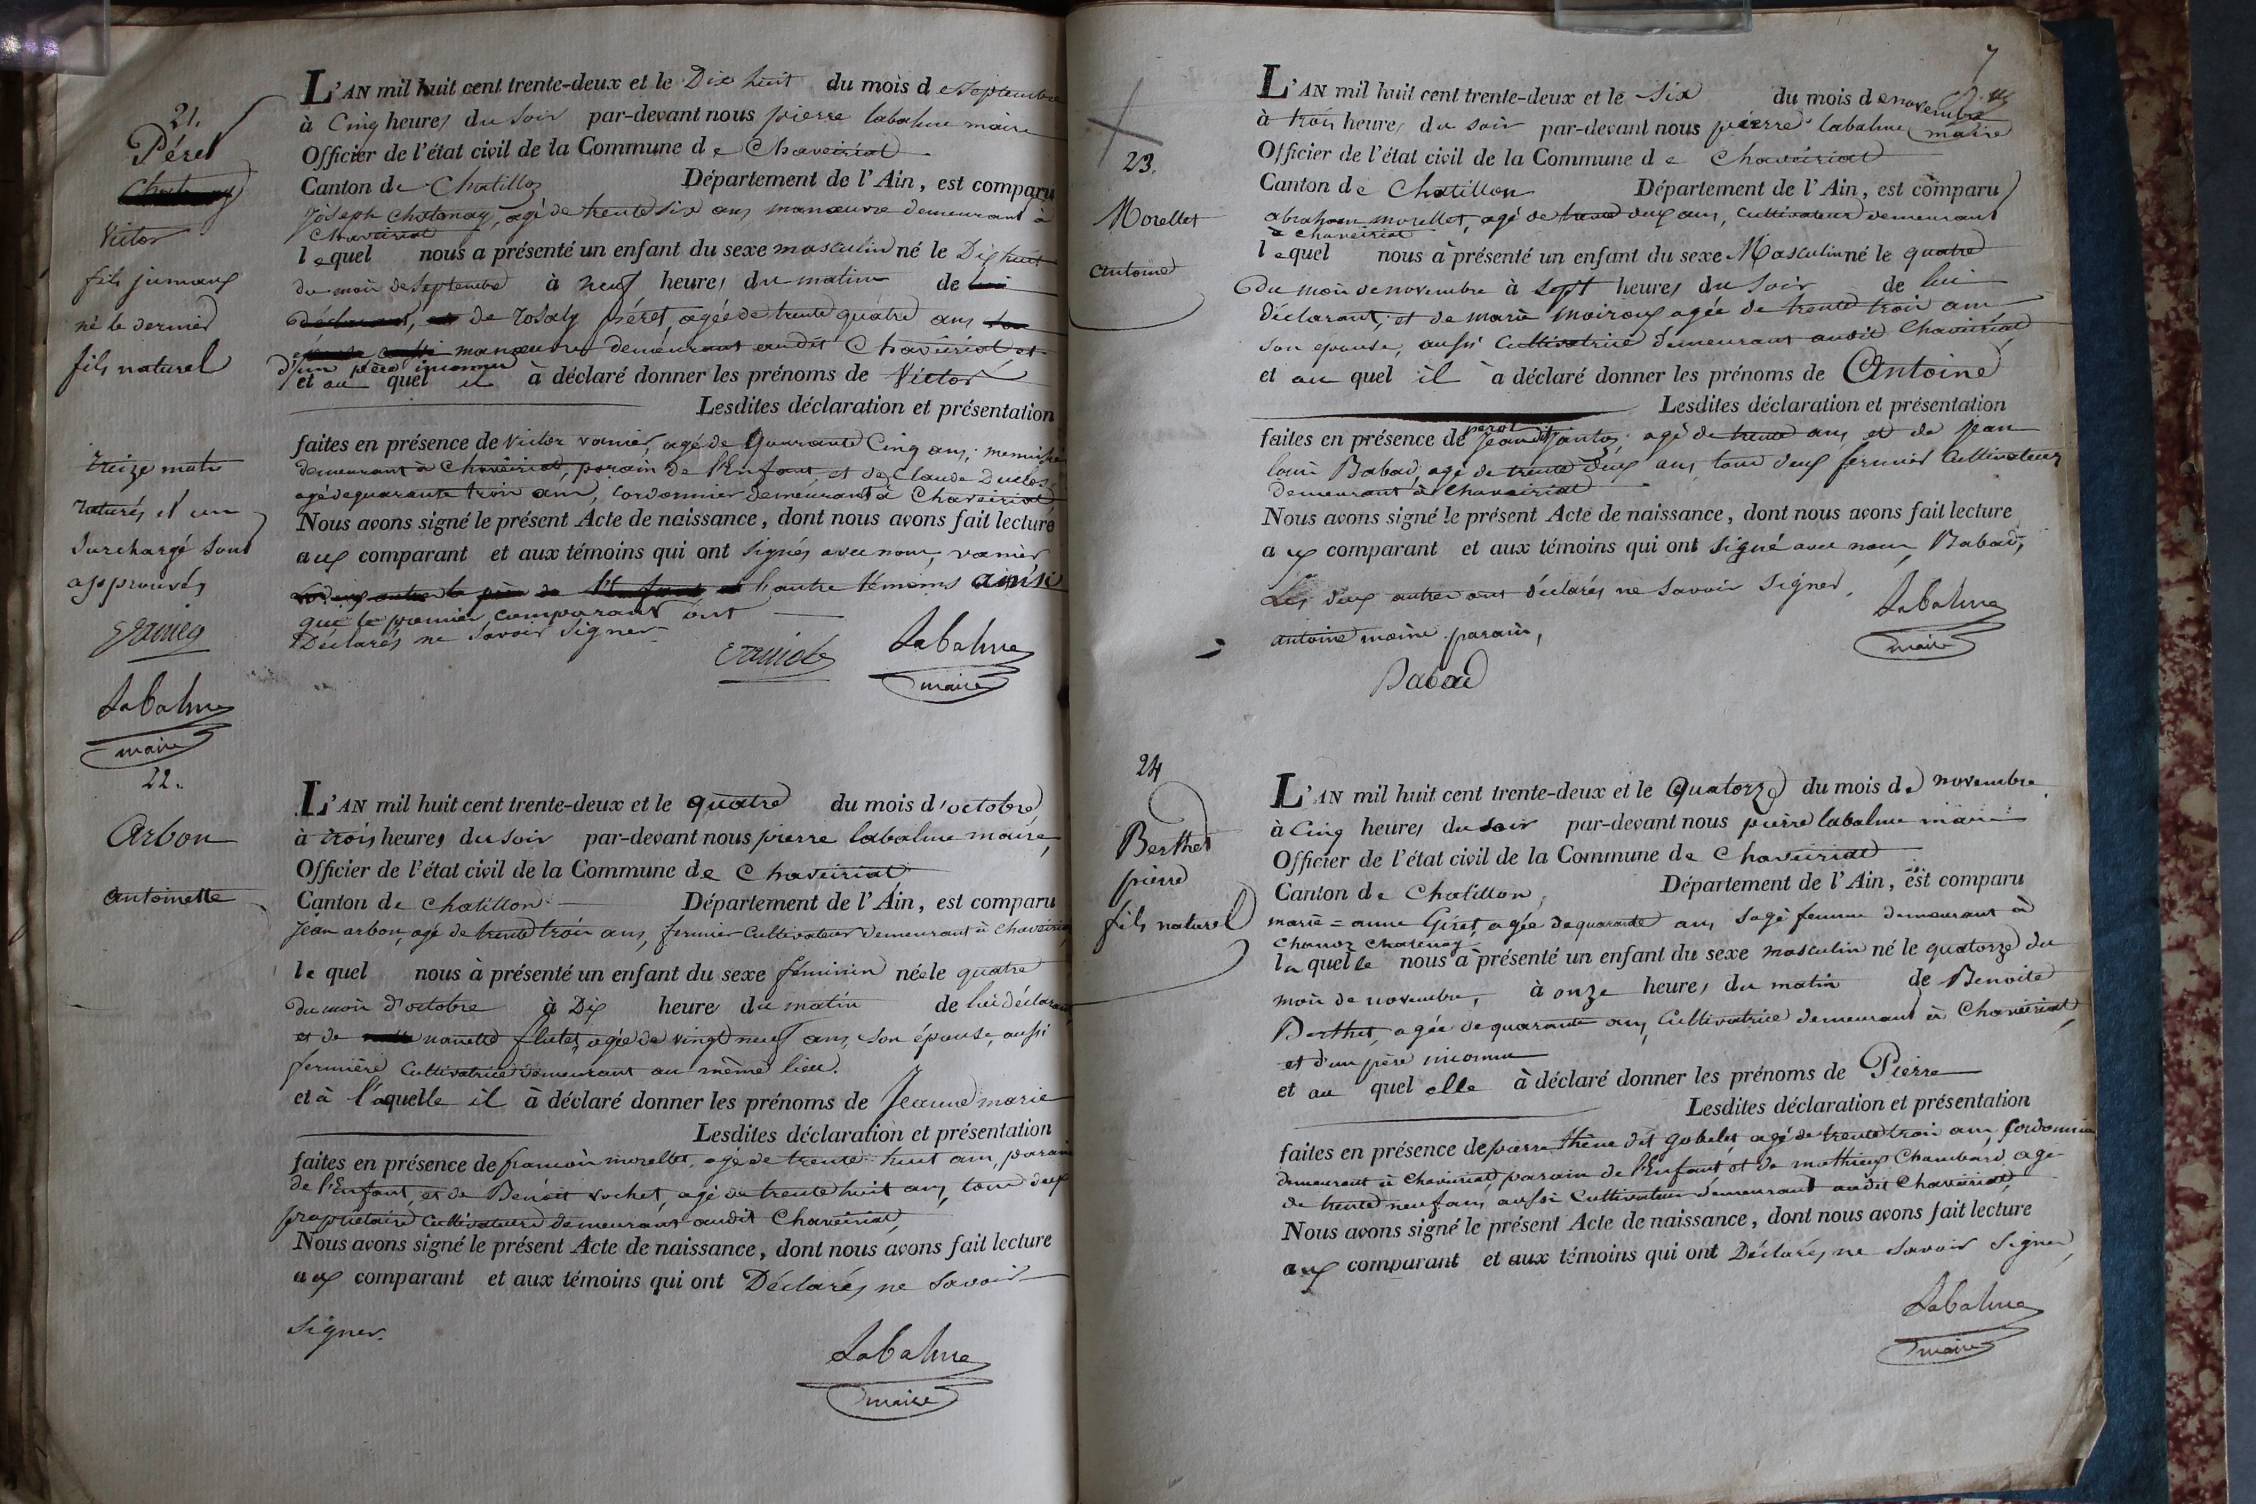 21.
Péret
Victor
fils jumeaux
né le dernier
fils naturel
treize mots
raturés et un
surchargé sont
approuvés
Labalme
maire
L'AN mil huit cent trente-deux et le Dix huit du mois de Septembre
à Cinq heures du soir par-devant nous pierre labalme maire
Officier de l'état civil de la Commune de Chaveiriat
Canton de Chatillon Département de l'Ain, est comparu
Joseph Chatenay, agé de trente six ans manœuvre demeurant à
Chaveiriat
lequel nous a présenté un enfant du sexe masculin né le Dix huit
du mois de septembre à neuf heures du matin de
de Rosaly péret, agée de trente quatre ans
manœuvre demeurant audit Chaveiriat et
d'un père inconnu
et au quel il à déclaré donner les prénoms de Victor
Lesdites déclaration et présentation
faites en présence de Victor vanier, agé de Quarante Cinq ans, menuisier
demeurant à Chaveiriat, parain de l'Enfant, et de Claude Duclos,
agé de quarante trois ans, cordonnier demeurant à Chaveiriat
Nous avons signé le présent Acte de naissance, dont nous avons fait lecture
aux comparant et aux témoins qui ont signés avec nous, vanier
l'autre témoins ainsi
que le premier comparant ont
Déclarés ne savoir signer
Labalme
maire
22.
Arbon
antoinette
L'AN mil huit cent trente-deux et le quatre du mois d'octobre
à trois heures du soir par-devant nous pierre labalme maire,
Officier de l'état civil de la Commune de Chaveiriat
Canton de Chatillon Département de l'Ain, est comparu
Jean arbon, agé de trente trois ans, fermier Cultivateur demeurant à Chaveiriat
lequel nous à présenté un enfant du sexe féminin née le quatre
du mois d'octobre à Dix heure du matin de lui déclarant
et de nanette flutet, agée de vingt neuf ans, son épouse, aussi
fermière Cultivatrice demeurant au même lieu.
et à laquelle il à déclaré donner les prénoms de Jeanne marie
Lesdites déclaration et présentation
faites en présence de francois morellet, agé de trente huit ans, parain
de l'Enfant, et de Benoit rochet, agé de trente huit ans, tous deux
propriétaire Cultivateurs demeurant audit Chaveiriat,
Nous avons signé le présent Acte de naissance, dont nous avons fait lecture
aux comparant et aux témoins qui ont Déclarés ne savoir
signer.
Labalme
maire
7
23.
Morellet
antoine
L'AN mil huit cent trente-deux et le six du mois de novembre
à trois heures du soir par-devant nous pierre labalme maire
Officier de l'état civil de la Commune de Chaveiriat
Canton de Chatillon Département de l'Ain, est comparu
abraham morellet, agé de trente deux ans, Cultivateur demeurant
à Chaveiriat
lequel nous à présenté un enfant du sexe Masculin né le quatre
du mois de novembre à sept heures du soir de lui
déclarant, et de marie moiroux agée de trente trois ans
son epouse, aussi Cultivatrice demeurant audit Chaveiriat
et au quel il à déclaré donner les prénoms de Antoine
Lesdites déclaration et présentation
faites en présence de Jean dit jantet, agé de trente ans et de jean
louis Babad, agé de trente deux ans, tous deux fermier Cultivateurs
demeurant à Chaveiriat
Nous avons signé le présent Acte de naissance, dont nous avons fait lecture
aux comparant et aux témoins qui ont signé avec nous, Babad,
Les deux autres ont déclarés ne savoir signer.
antoine moine parain,
Labalme
maire
Babad
24
Berthet
pierre
fils naturel
L'AN mil huit cent trente-deux et le Quatorze du mois de novembre
à Cinq heures du soir par-devant nous pierre labalme maire
Officier de l'état civil de la Commune de Chaveiriat
Canton de Chatillon, Département de l'Ain, est comparu
marie = anne Giret, agée de quarante ans, sage femme demeurant à
Chanoz Chatenay,
laquelle nous à présenté un enfant du sexe masculin né le quatorze du
mois de novembre, à onze heures du matin de Benoite
Berthet, agée de quarante ans, Cultivatrice demeurant à Chaveiriat,
et d'un père inconnu
et au quel elle à déclaré donner les prénoms de Pierre
Lesdites déclaration et présentation
faites en présence de pierre thène dit gobelet agé de trente trois ans, Cordonnier
demeurant à Chaveiriat, parain de l'Enfant, et de mathieux Chambard, agé
de trente neuf ans, aussi Cultivateur demeurant audit Chaveiriat,
Nous avons signé le présent Acte de naissance, dont nous avons fait lecture
aux comparant et aux témoins qui ont Déclarés ne savoir signer,
Labalme
maire